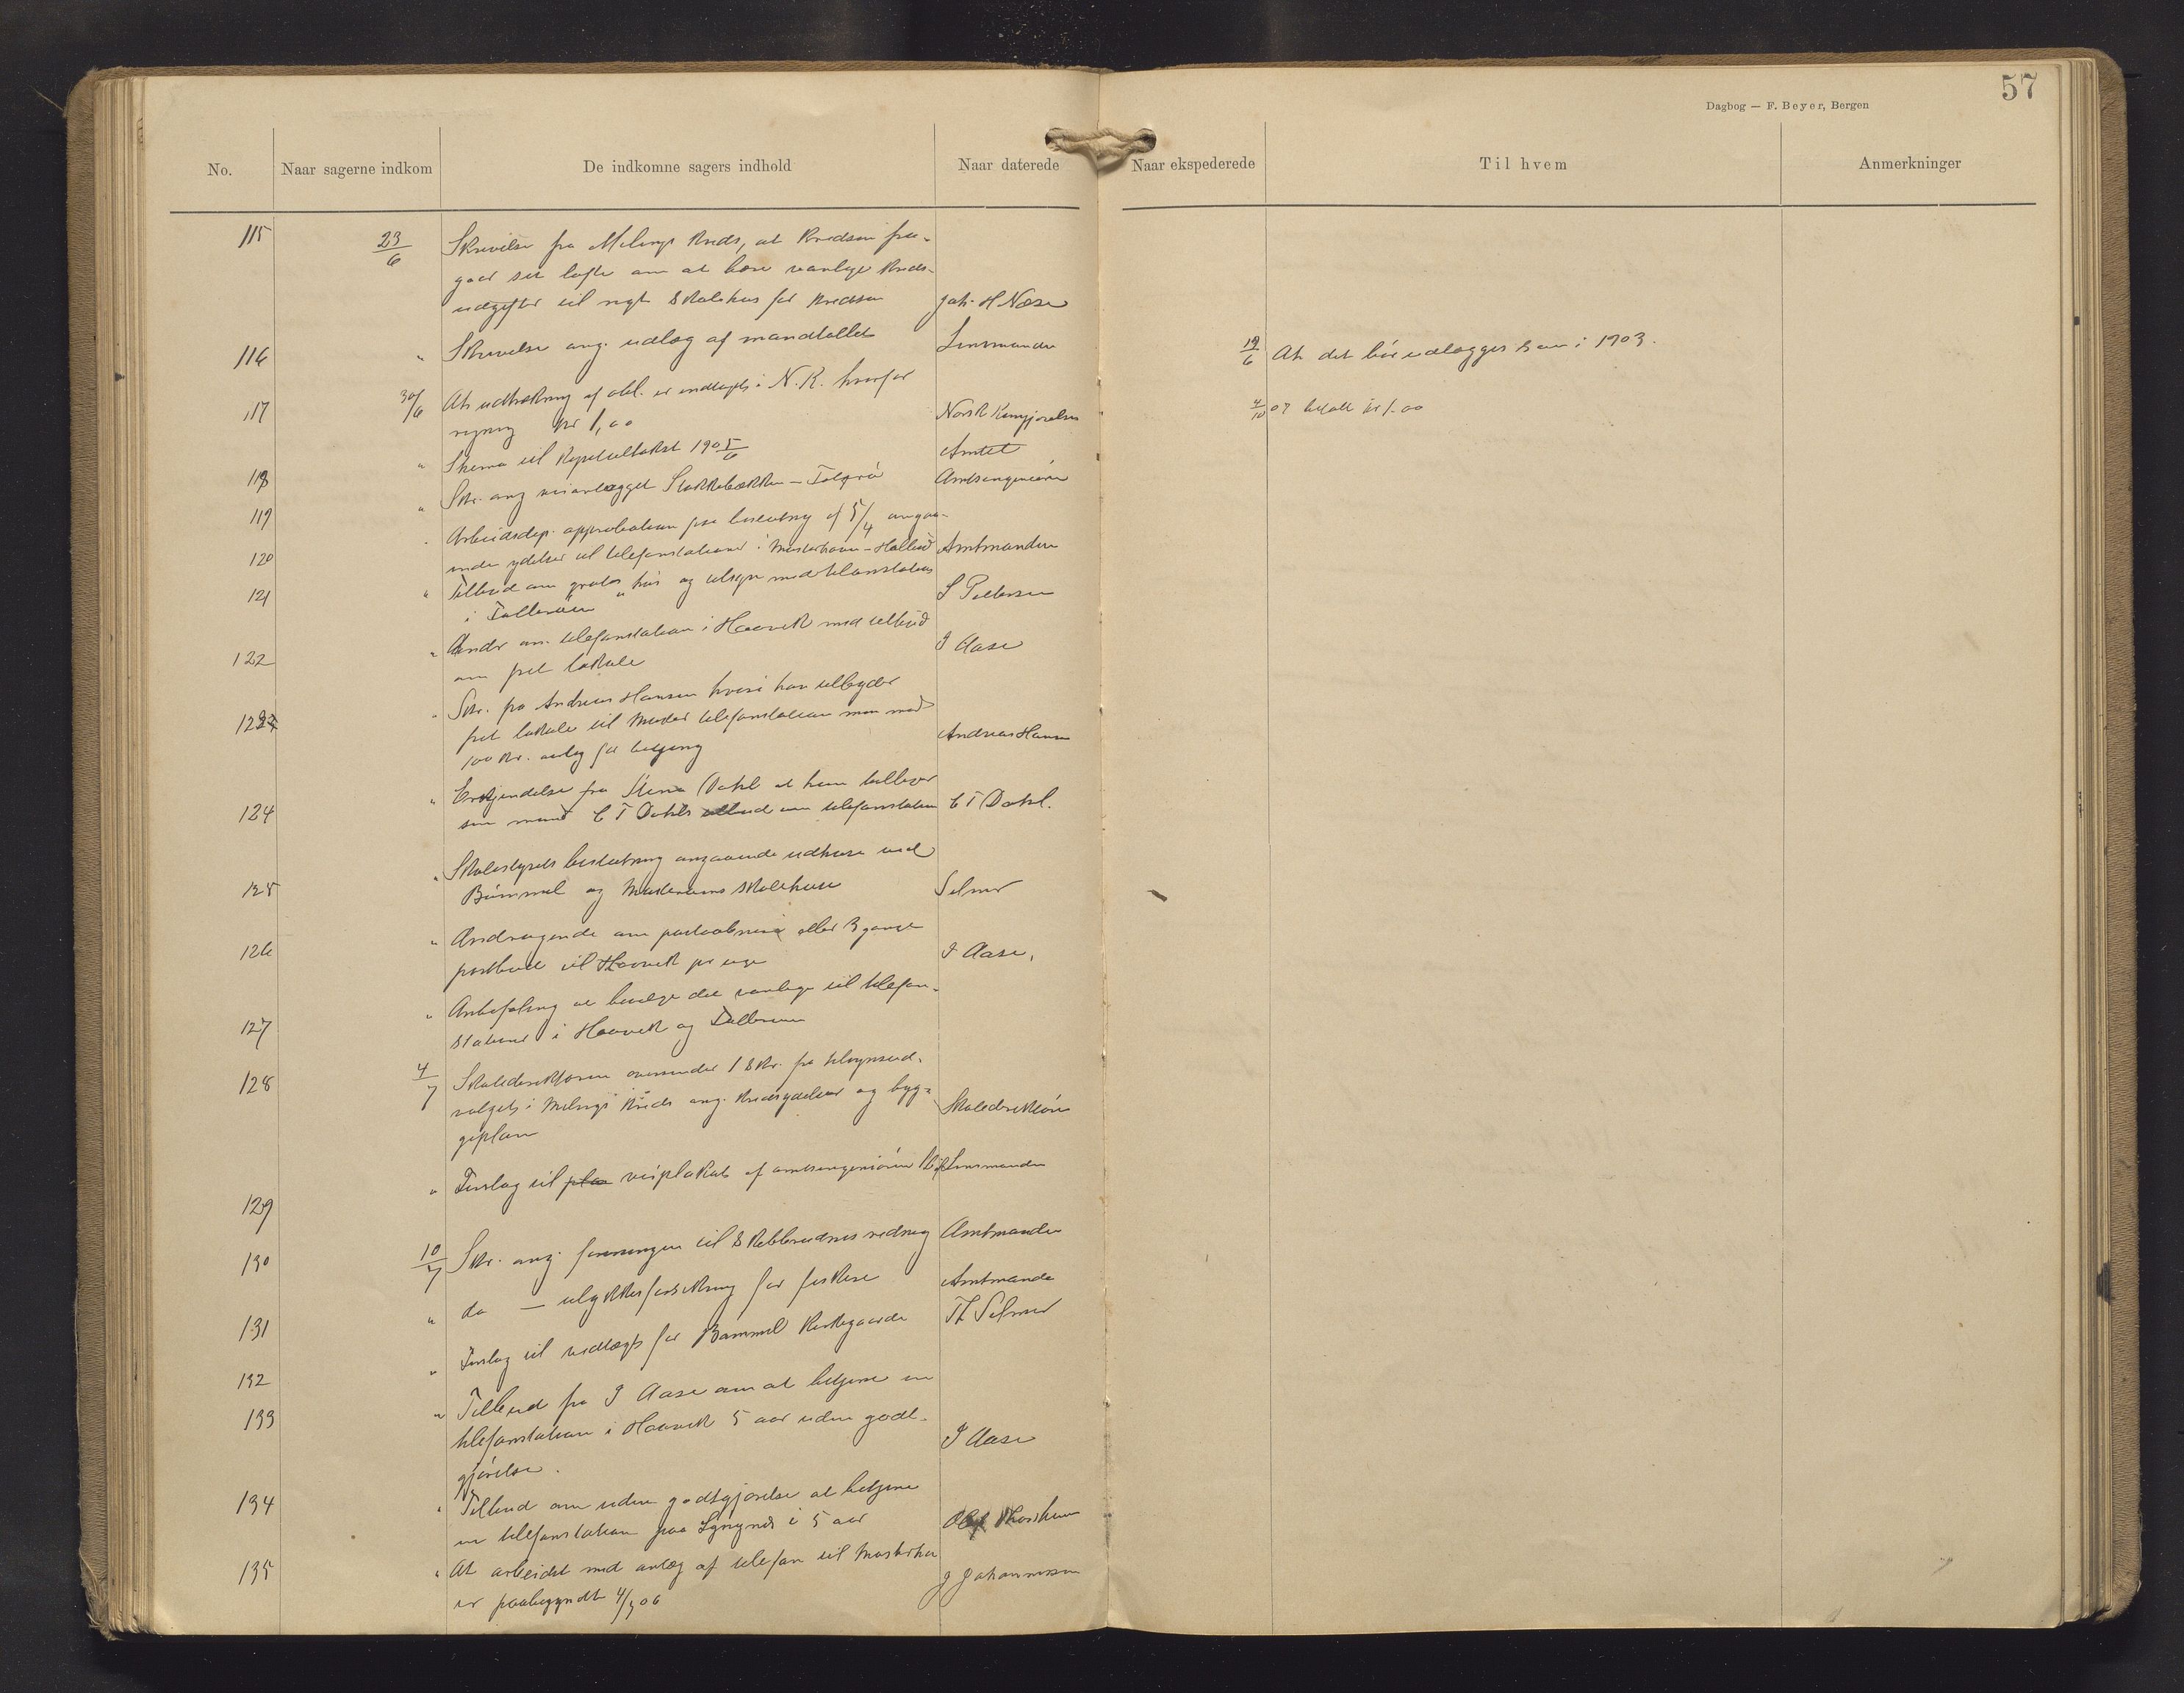 57
Dagbog — F. Beyer, Bergen
No. Naar sagerne indkom De indkomne sagers indhold Naar daterede Naar ekspederede Til hvem Anmerkninger
115 23/6 Skrivelse fra Melings Kreds, at Kredsen fra-
gaar sit løfte om at bære vanlige Kreds-
udgifter til nyt Skolehus for Kredsen Joh. H Næse
116 " Skrivelse ang. udlæg af mandtallet Lensmanden 19/6 At det bør udlægges som i 1903.
117 30/6 At udtrækning af obl. er indtagt i N. K. hvorfor
regning Kr 1,00 Norsk Kungjørelses 4/10 07 betalt kr 1.00
118 " Skema til Kapiteltakst 1905/6 Amtet
119 " Skr. ang veianlægget Stokkebækken - Amtsingeniøren
120 " Arbeidsdep. approbation paa beslutning af 5/4 angaa-
ende ydelser til telefonstationer i Mosterhavn - Amtmanden
121 " Tilbud om gratis hus og tilsyn med telefonstation
i S Pettersen
122 " Andr om telefonstation i Haavik med tilbud
om frit lokale I Aase
123 " Skr. fra Andreas Hansen hvori han tilbyder
frit lokale til Moster telefonstation men med
100 kr. aarlig for betjening Andreas Hansen
124 " Erkjendelse fra Dahl at hun
sin mand C T Dahls tilbud om telefonstation C T Dahl.
125 " Skolestyrets beslutning angaaende udhuse ved
Bømmel og skolehuse Selmer
126 " Andragende om postaabneri eller 3 gange
postbud til Haavik pr uge I Aase.
127 " Anbefaling at bevilge det vanlige til telefon-
stationer i Haavik og
128 4/7 Skoledirektøren oversender 1 Skr. fra tilsynsud-
valget i Melings Kreds ang. Kredsydelser og byg-
geplan Skoledirektøren
129 " Forslag til plan veiplakat af amtsingeniøren Lensmanden
130 10/7 Skr. ang. foreningen til Skibbrudnes redning Amtmanden
131 " do — ulykkesforsikring for fiskere Amtmanden
132 " Forslag til vedtægt for Bømmel Kirkegaarde Th Selmer
133 " Tilbud fra I Aase om at betjene en
telefonstation i Haavik 5 aar uden godt-
gjørelse. I Aase
134 " Tilbud om uden godtgjørelse at betjene
en telefonstation paa i 5 aar
135 " At arbeidet med anlæg af telefon til Mosterhavn
er paabegyndt 4/7 06 J Johannessen